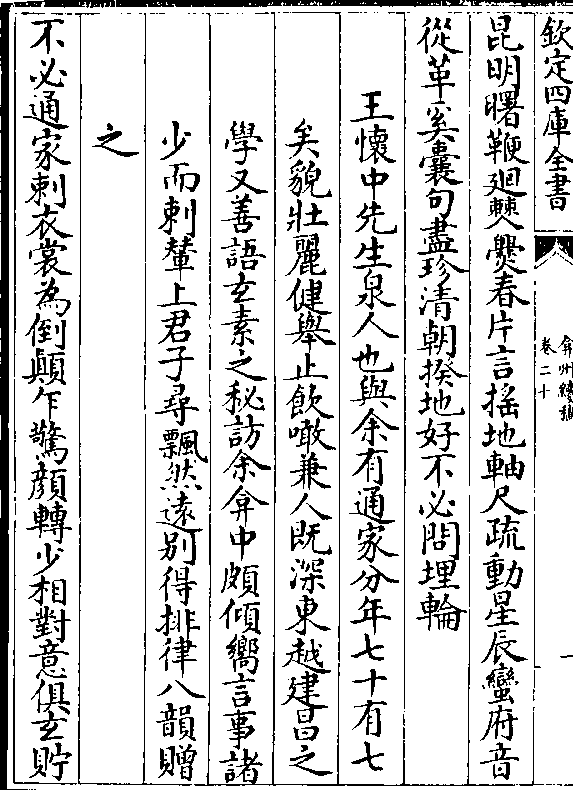 欽定四庫全書
弇州續稿
卷二十
一
昆明曙鞭廻僰爨春片言揺地軸尺疏動星辰蠻府音
從革奚囊句盡珍清朝揆地好不必問埋輪
王懐中先生泉人也與余有通家分年七十有七
矣貌壯麗健舉止飲噉兼人既深東越建昌之
學又善語玄素之秘訪余弇中頗傾嚮言事諸
少而刺輦上君子尋飄然逺别得排律八韻贈
之
不必通家刺衣裳為倒顛乍驚顔轉少相對意俱玄貯